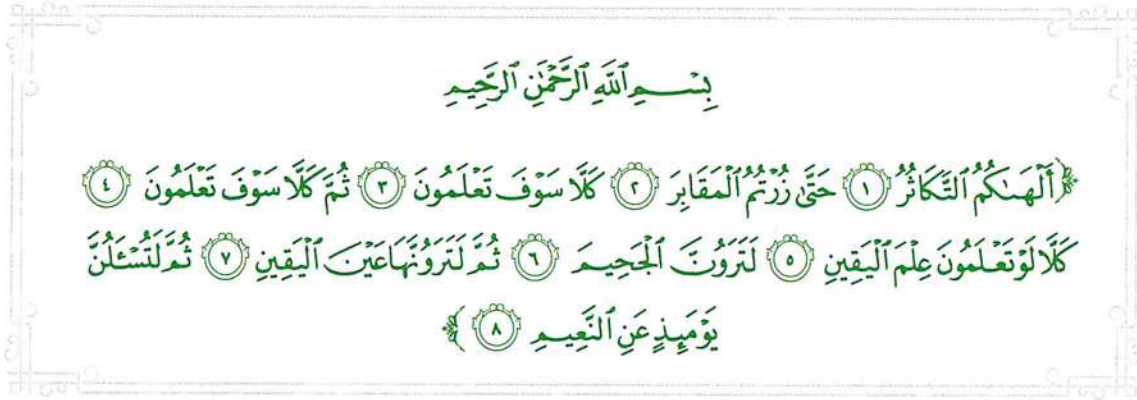 بِسْمِ ٱللَّهِ ٱلرَّحْمَٰنِ ٱلرَّحِيمِ
﴿أَلْهَىٰكُمُ ٱلتَّكَاثُرُ ١ حَتَّىٰ زُرْتُمُ ٱلْمَقَابِرَ ٢ كَلَّا سَوْفَ تَعْلَمُونَ ٣ ثُمَّ كَلَّا سَوْفَ تَعْلَمُونَ ٤
كَلَّا لَوْ تَعْلَمُونَ عِلْمَ ٱلْيَقِينِ ٥ لَتَرَوُنَّ ٱلْجَحِيمَ ٦ ثُمَّ لَتَرَوُنَّهَا عَيْنَ ٱلْيَقِينِ ٧ ثُمَّ لَتُسْـَٔلُنَّ
يَوْمَئِذٍ عَنِ ٱلنَّعِيمِ ٨﴾